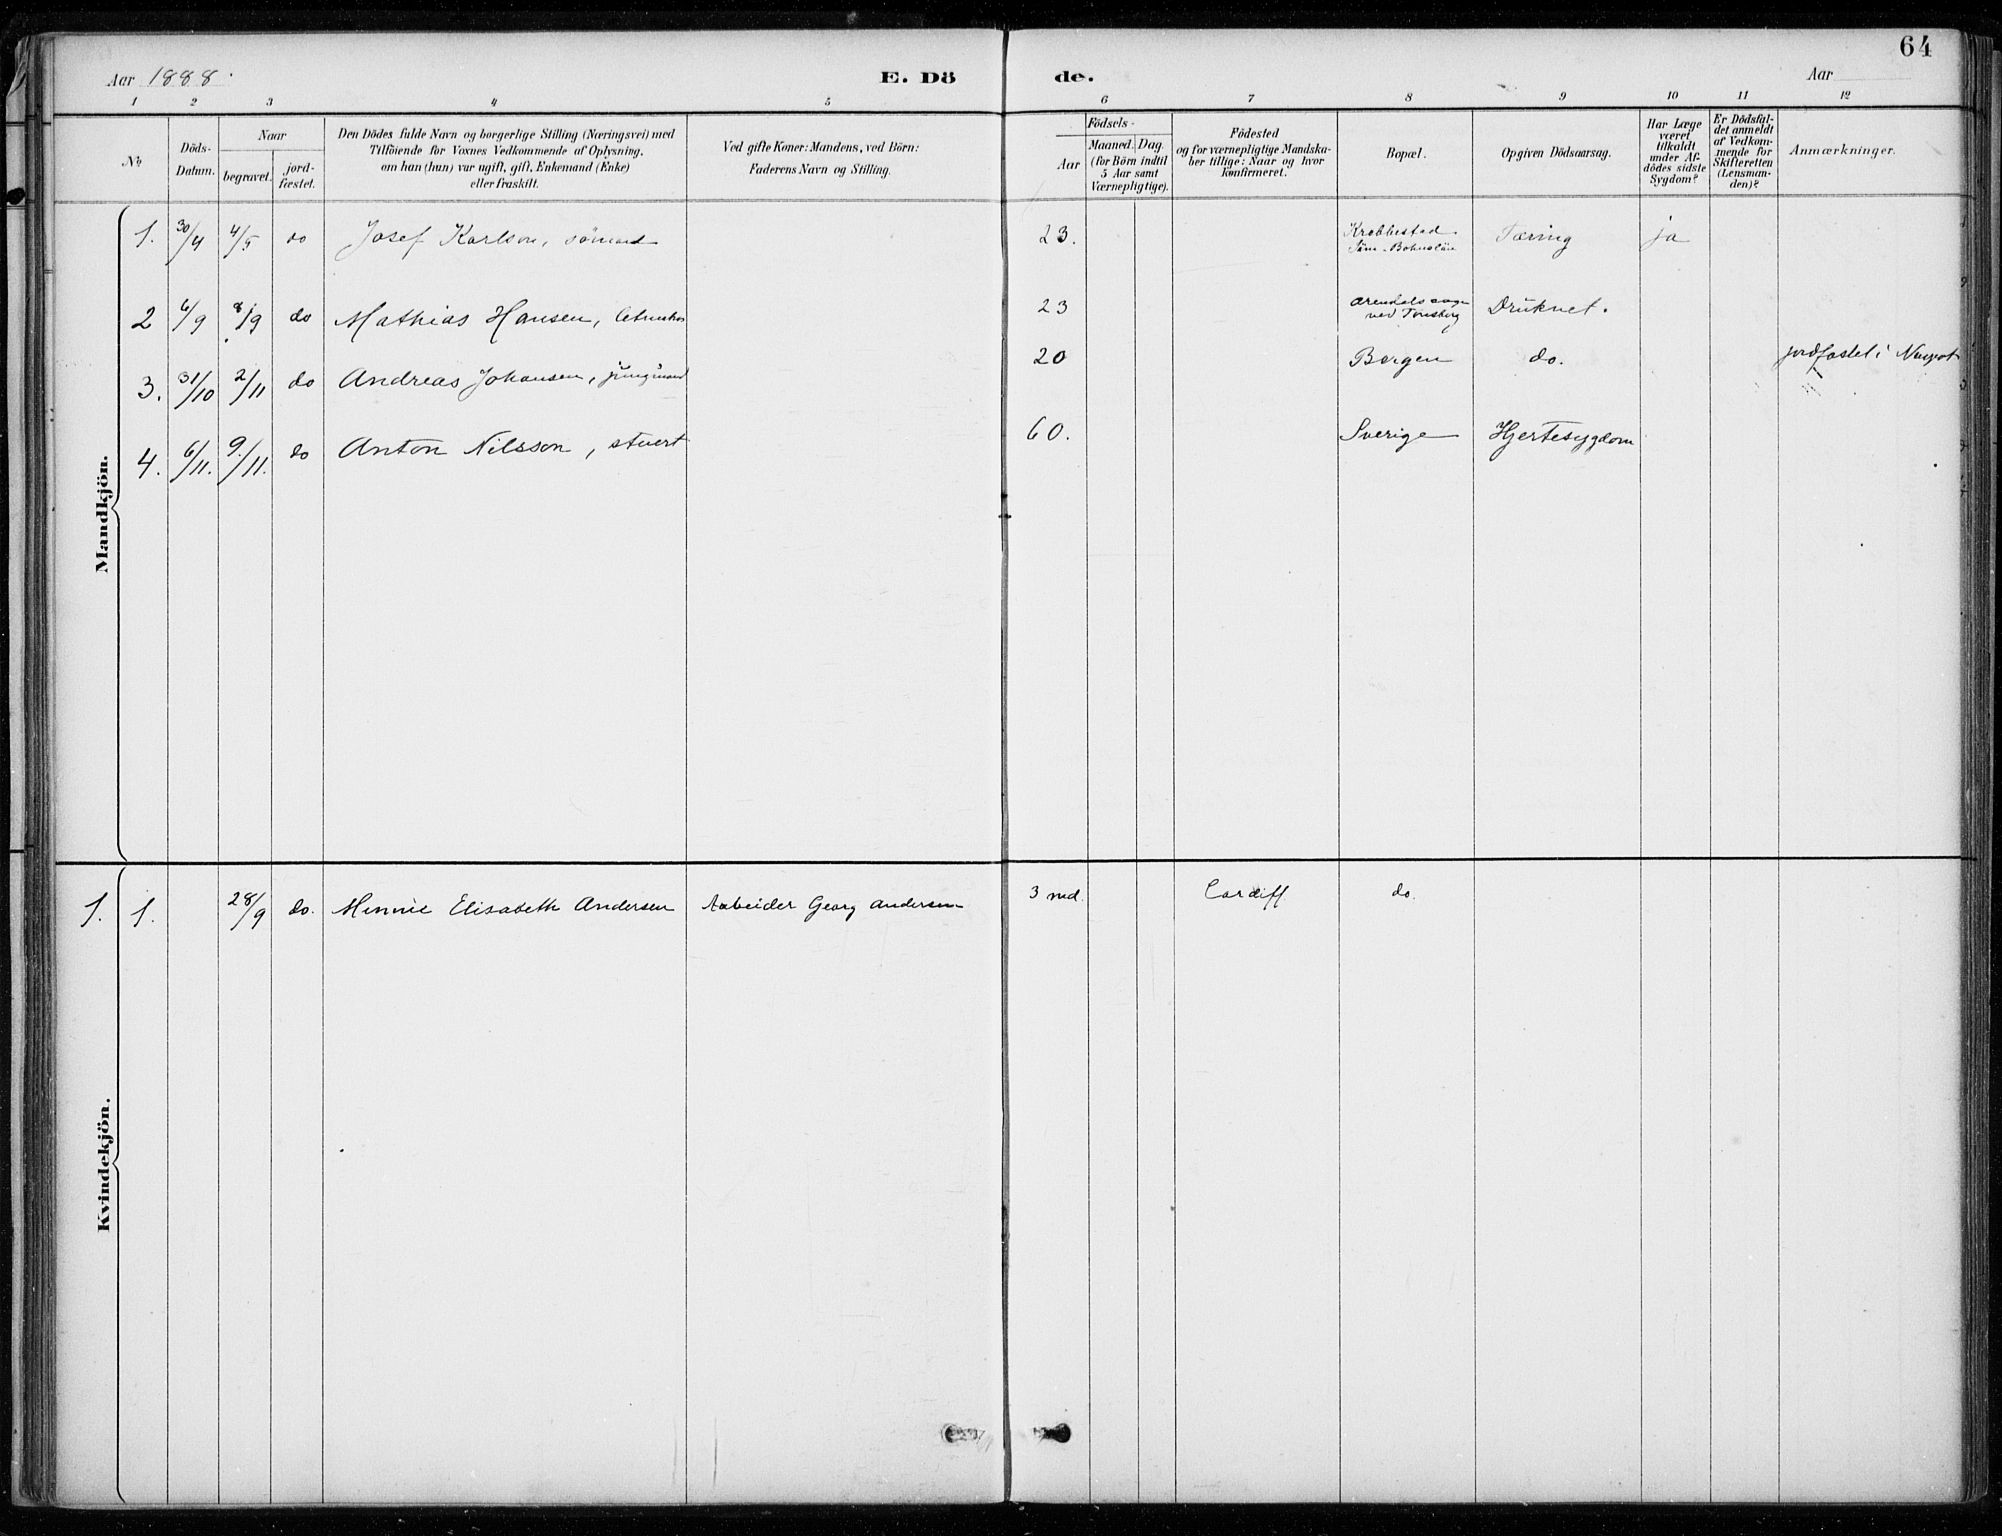 64
Aar 1888.
E. Dö
de.
Aar
1 2 3 4 5 6 7 8 9 10 11 12
No
Döds-
Datum.
Naar
begravet.
jord-
fæstet.
Den Dödes fulde Navn og borgerlige Stilling (Næringsvei) med
Tilföiende for Voxnes Vedkommende af Oplysning,
om han (hun) var ugift, gift, Enkemand (Enke)
eller fraskilt.
Ved gifte Koner: Mandens, ved Börn:
Faderens Navn og Stilling.
Födsels-
Aar
Maaned. Dag.
(for Börn indtil
5 Aar samt
Værnepligtige).
Födested
og for værnepligtige Mandska-
ber tillige: Naar og hvor
konfirmeret.
Bopæl.
Opgiven Dödsaarsag.
Har Læge
været
tilkaldt
under Af-
dödes sidste
Sygdom?
Er Dödsfal-
det anmeldt
af Vedkom-
mende for
Skifteretten
(Lensman-
den)?
Anmærkninger.
Mandkjön.
1. 30/4 4/5 do Josef Karlson, sömand 23. Krabbestad Bohuslän Tæring ja
2 6/9 8/9 do Mathias Hansen, 23 ved Tönsberg Druknet.
3. 31/10 2/11 do Andreas Johansen, jungmand 20 Bergen do. jordfæstet i
4. 6/11. 9/11. do Anton Nilsson, stuert 60. Sverige Hjertesygdom
Kvindekjön.
1. 1. 28/9 do. Minnie Elisabeth Andersen Arbeider Georg Andersen 3 md. Cardiff do.